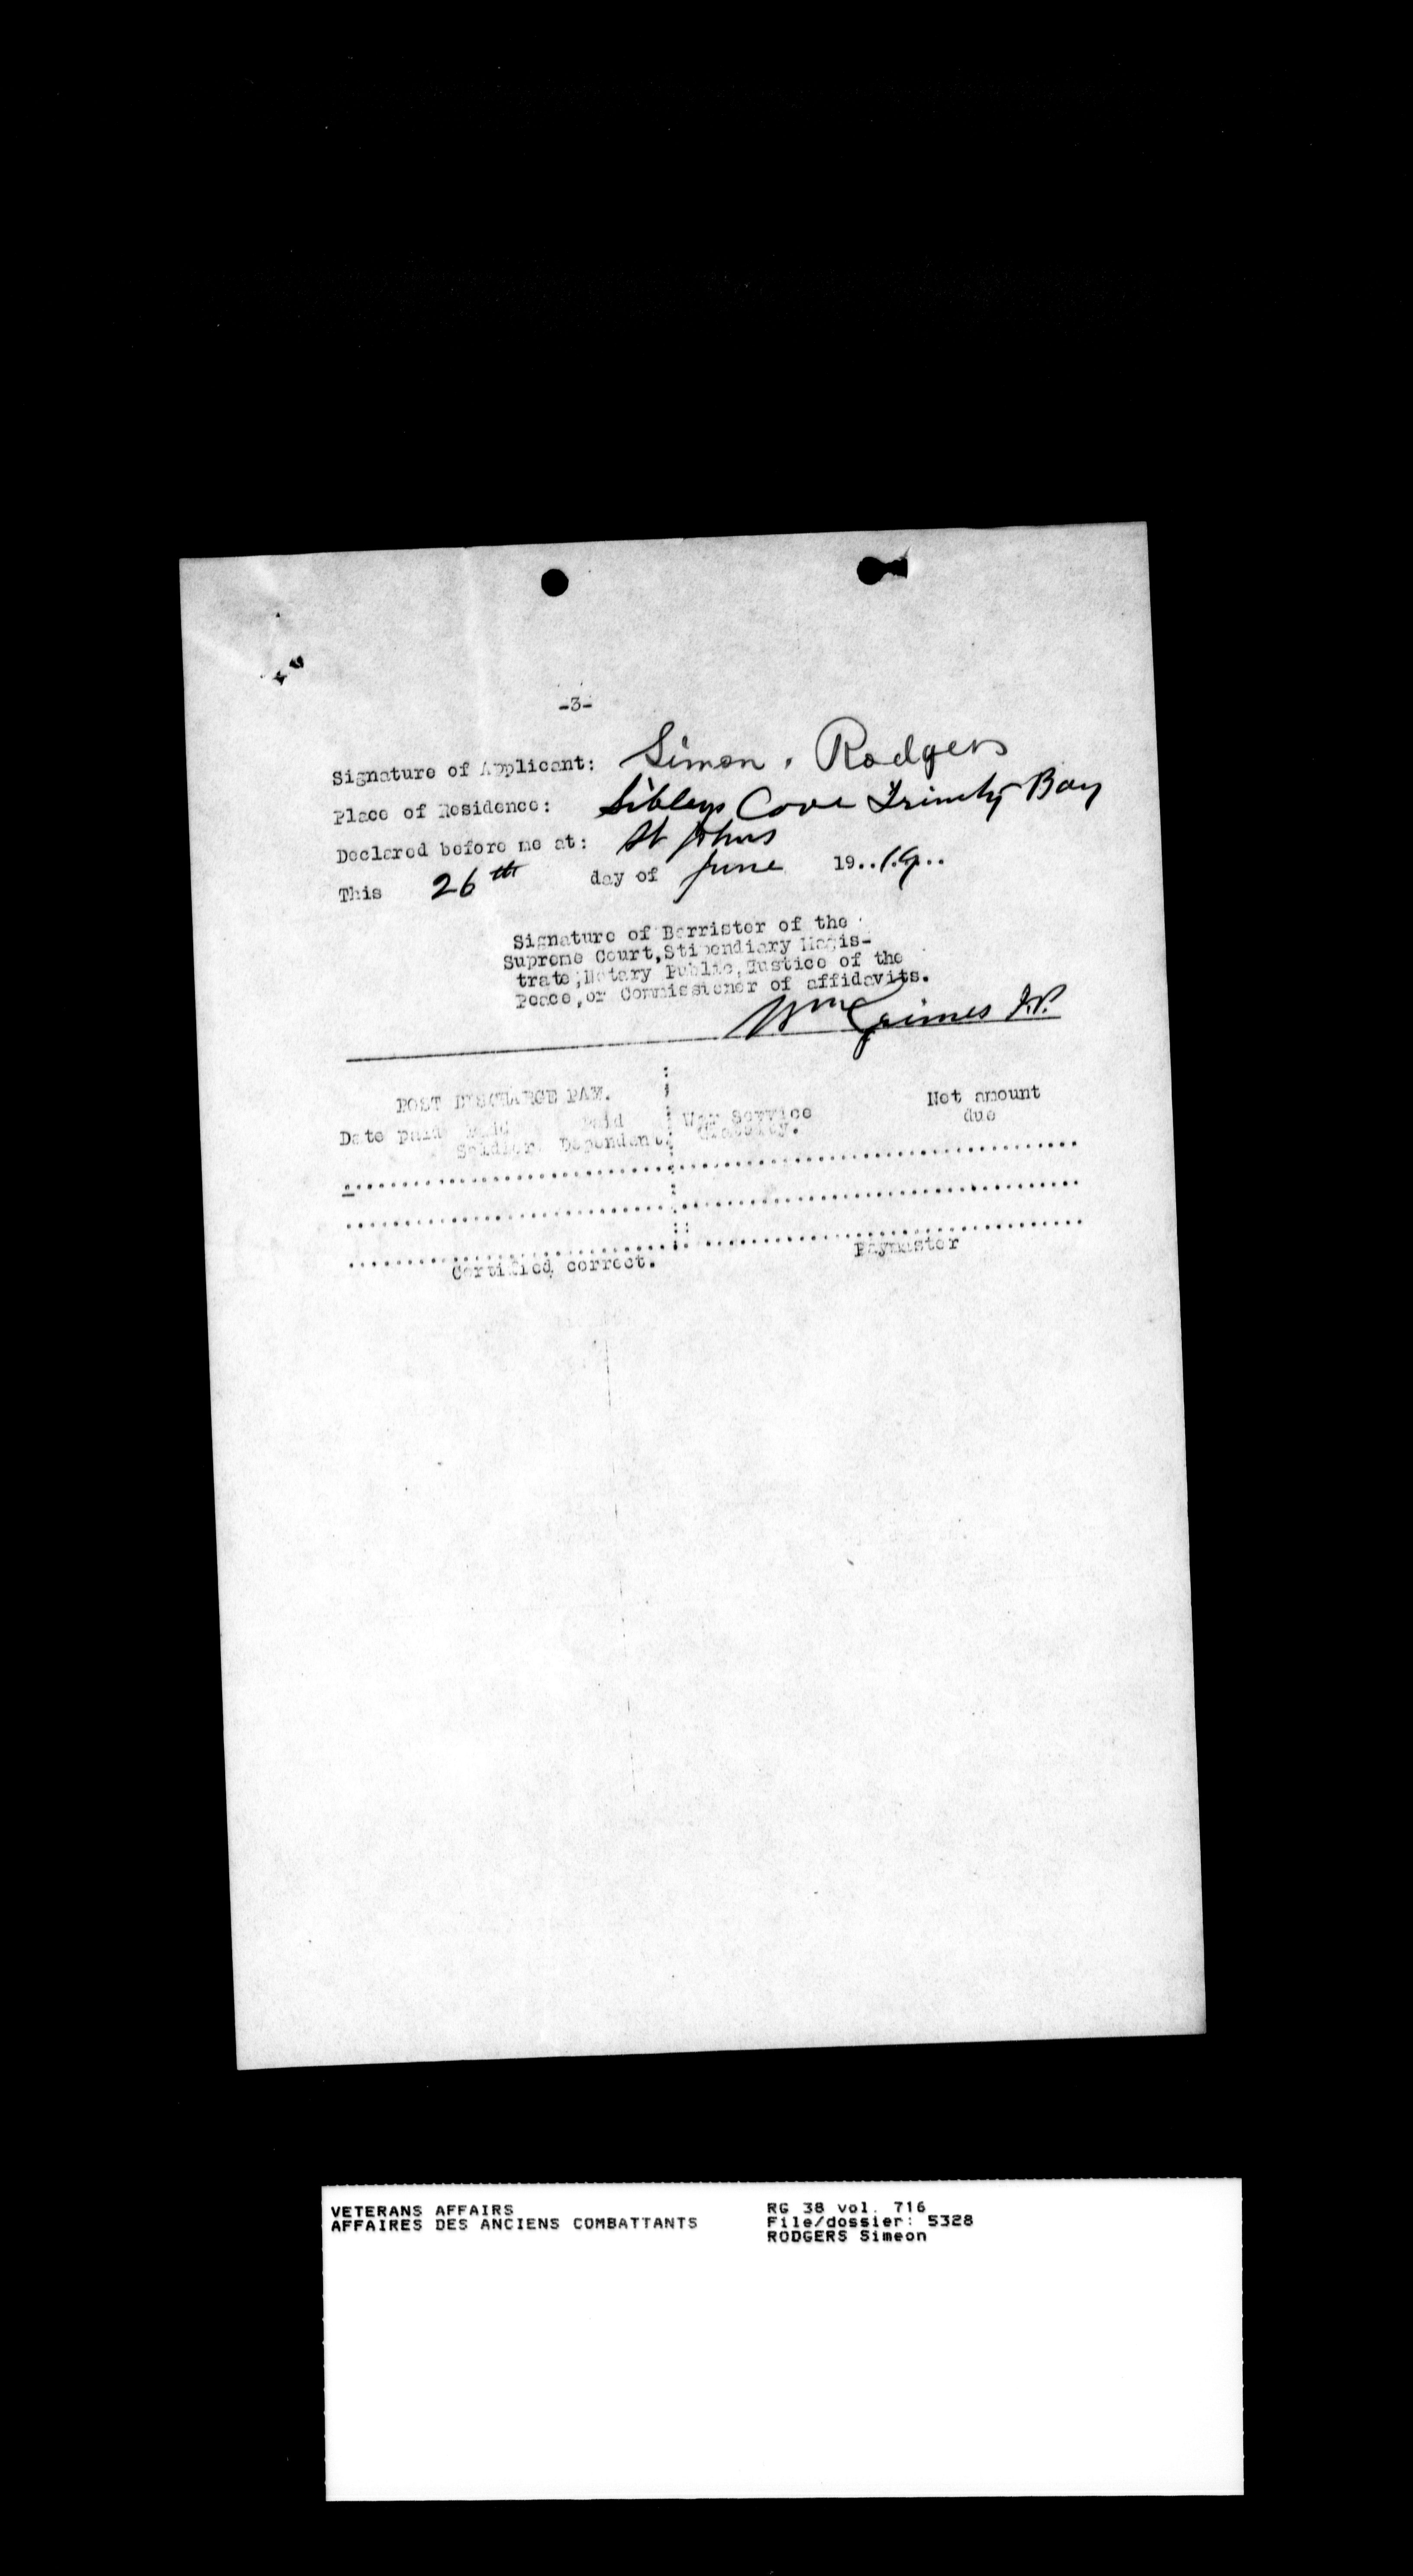 -3-
Signature of Applicant: Simon. Rodgers
Place of Residence: Sibleys Cove Trinity Bay
Declared before me at: St Johns
This 26th day of June 19..19..
Signature of Barrister of the
Supreme Court, Stipendiary Magis-
trate, Notary Public, Justice of the
Peace, or Commissioner of affidavits.
Wm Grimes J.P.
POST DISCHARGE PAY.
Date paid Paid Soldier Paid Dependent War Service Gratuity. Net amount due
Certified correct. Paymaster
VETERANS AFFAIRS RG 38 vol. 716
AFFAIRES DES ANCIENS COMBATTANTS File/dossier: 5328
RODGERS Simeon